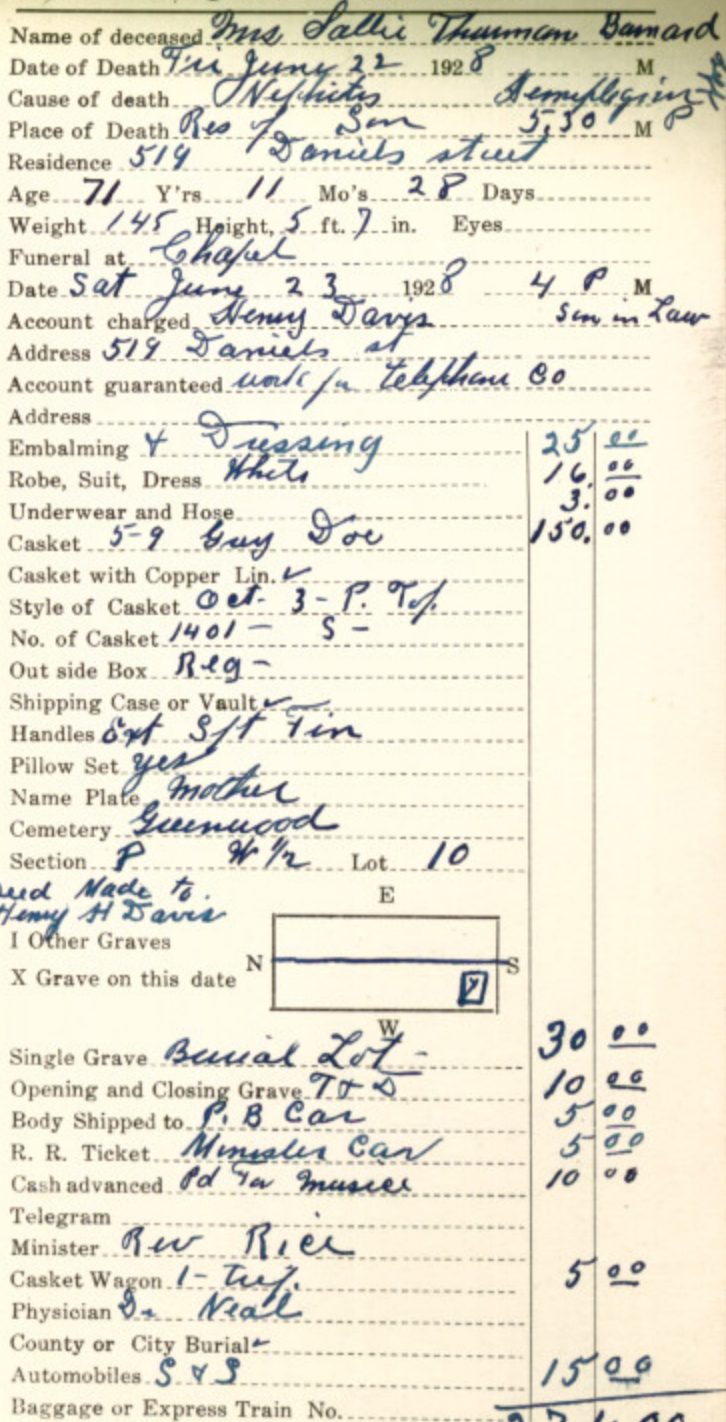 Name of deceased Mrs Sallie Thurman Barnard
Date of Death Fri June 22 1928 M
Cause of death Nephites Hemiplegia
Place of Death Res of Son 5,30 M P
Residence 519 Daniels street
Age 71 Y'rs 11 Mo's 28 Days
Weight 145 Height, 5 ft. 7 in. Eyes
Funeral at Chapel
Date Sat June 23 1928 4 P M
Account charged Henry Davis Son in Law
Address 519 Daniels st
Account guaranteed work for telephone Co
Address
Embalming & Dressing 25 00
Robe, Suit, Dress White 16. 00
Underwear and Hose 3. 00
Casket 5-9 Grey Doe 150. 00
Casket with Copper Lin. ✓
Style of Casket Oct. 3 - P. Top.
No. of Casket 1401 - S -
Out side Box Reg -
Shipping Case or Vault ✓
Handles Ext S/t Tin
Pillow Set yes
Name Plate Mother
Cemetery Greenwood
Section P W 1/2 Lot 10
Deed Made to.
Henry H Davis
E
I Other Graves
N S
X Grave on this date X
W
Single Grave Burial Lot - 30 00
Opening and Closing Grave T & D 10 00
Body Shipped to P. B Car 5 00
R. R. Ticket Minister Car 5 00
Cash advanced Pd For Musice 10 00
Telegram
Minister Rev Rice
Casket Wagon 1 - 5 00
Physician Dr Neal
County or City Burial ✓
Automobiles S & S 15 00
Baggage or Express Train No.